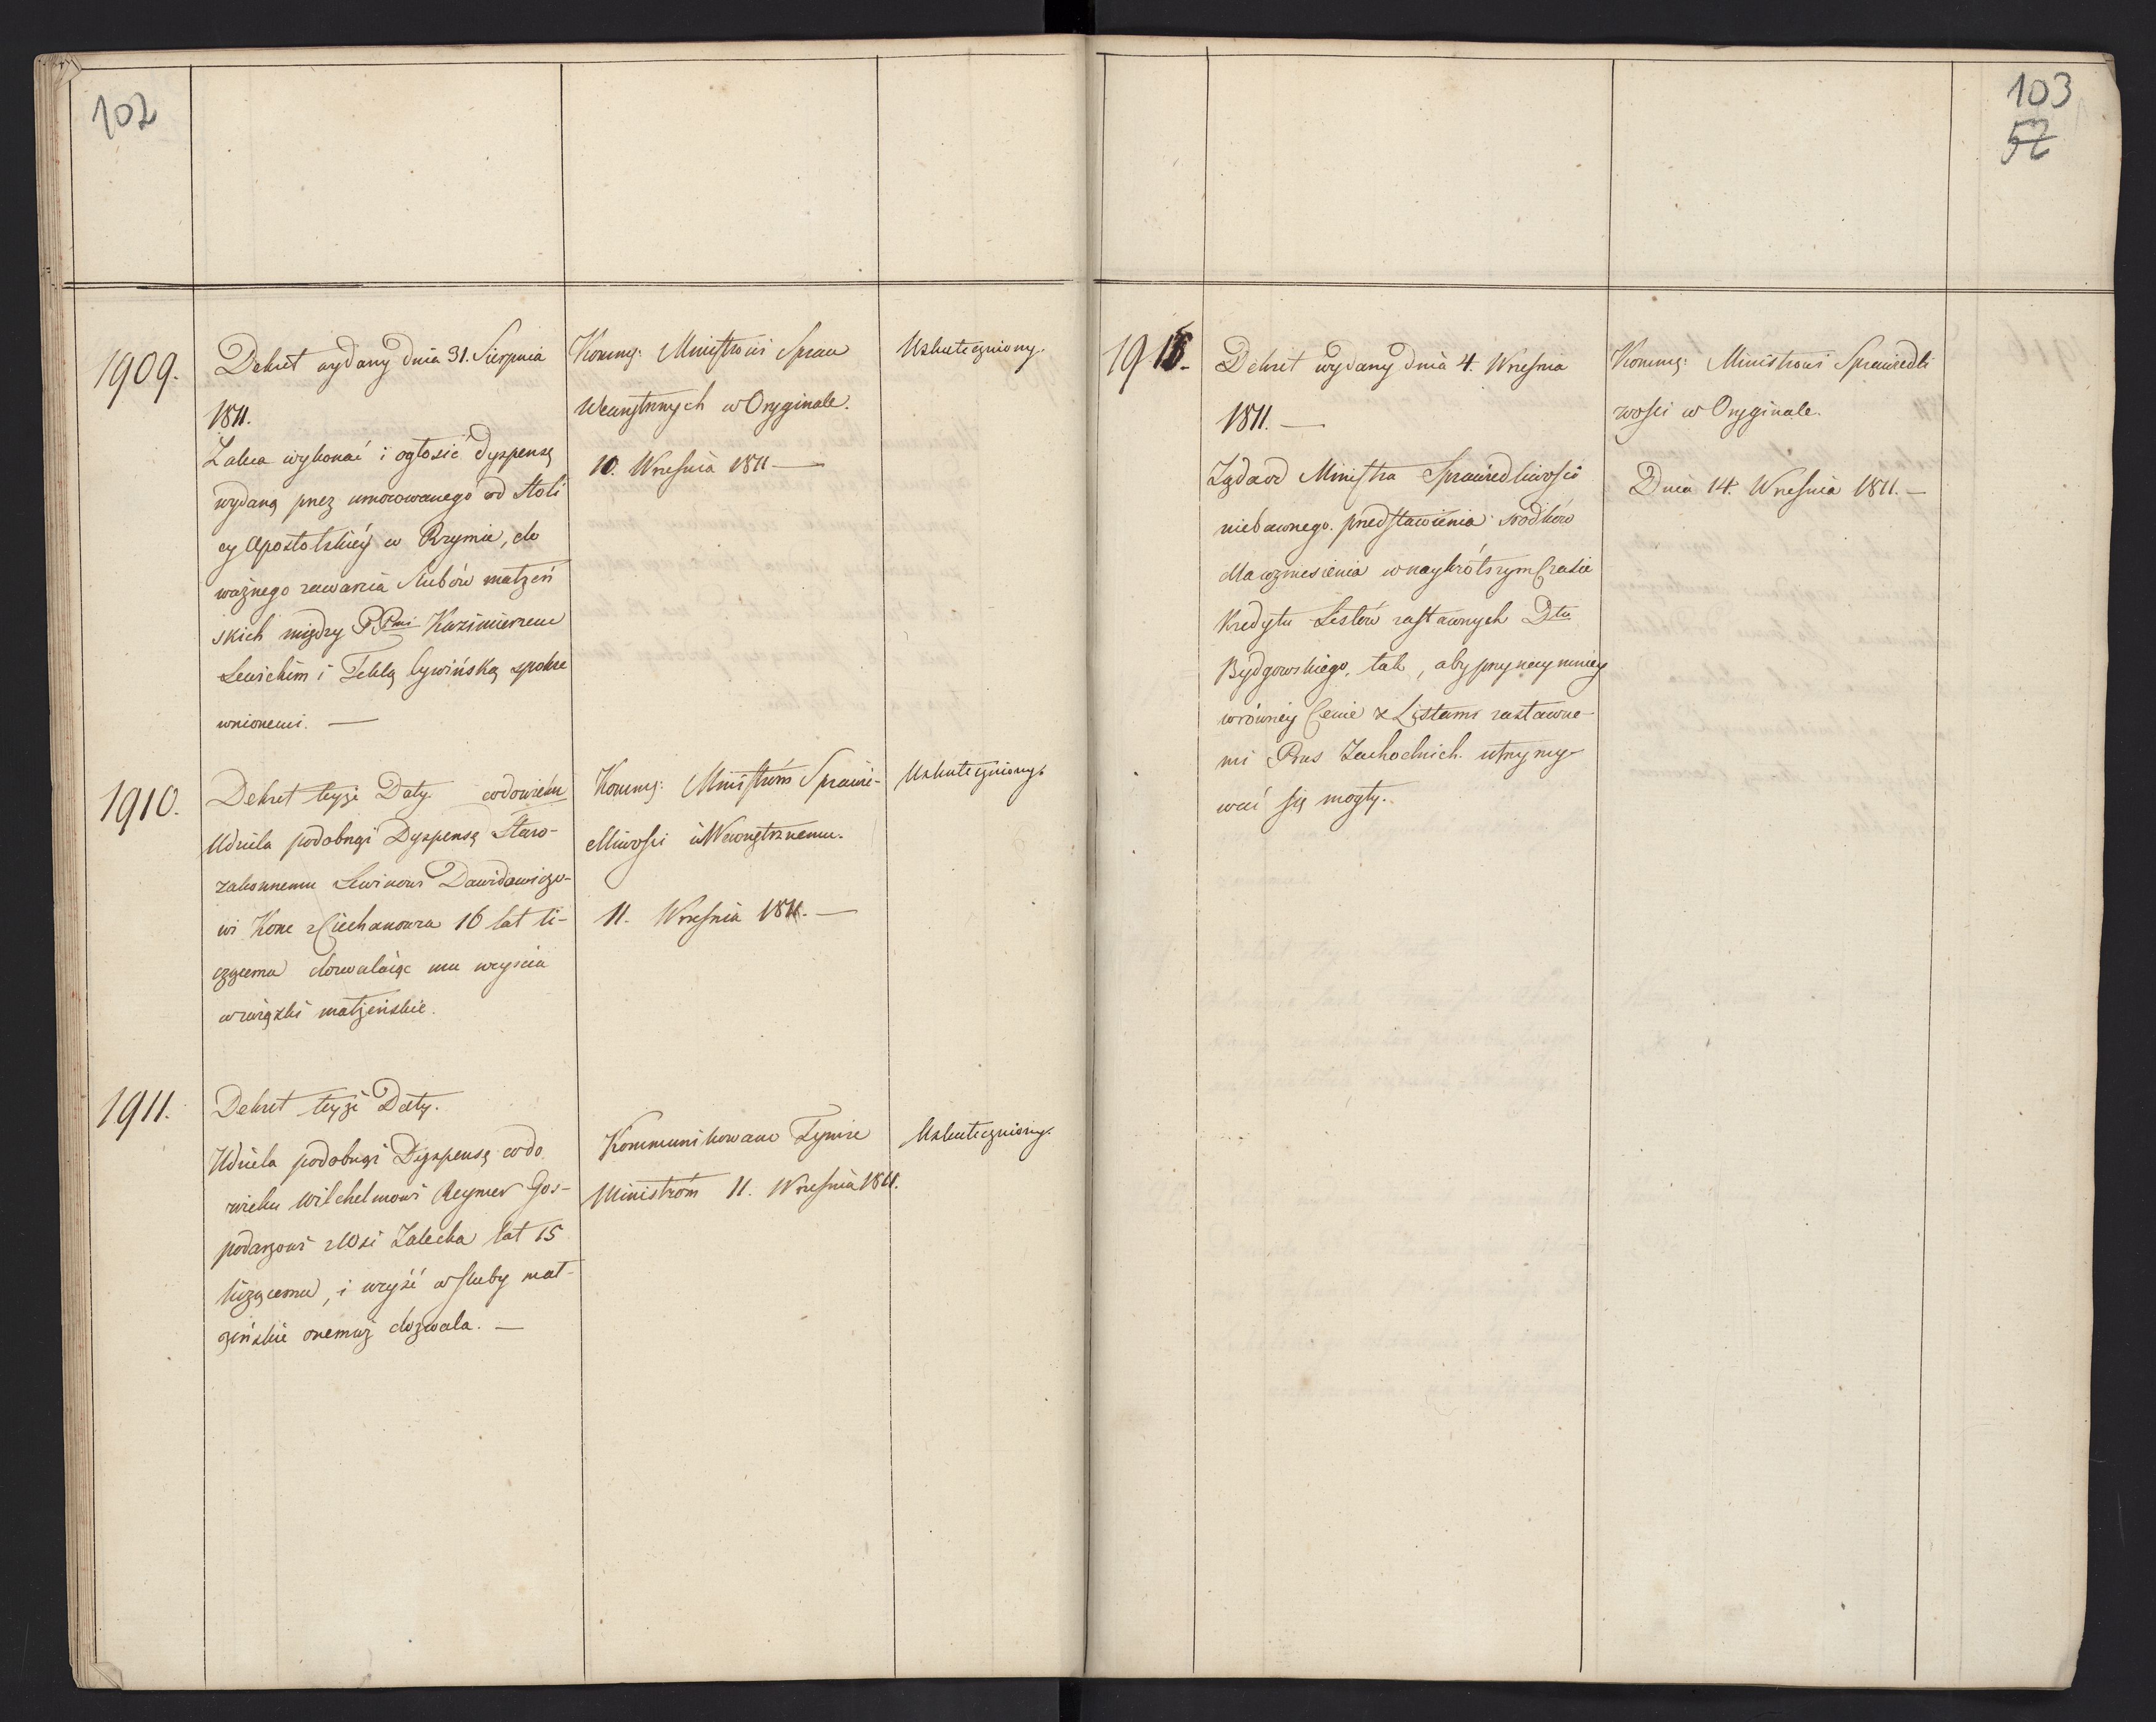 102
1909.
Dekret wydany dnia 31. Sierpnia
1811.
Zaleca wykonać i ogłosić dyspensę
wydaną przez umocowanego od Stoli
cy Apostolskiéy w Rzymie, do
ważnego zawarcia slubów małżeń
skich między PPmi Kazimierzem
Lewickim i Teklą Cywińską spokre
wnionemi. —
Kommq: Ministrowi Spraw
Wewnętrznych w Oryginale.
10. Wrześnià 1811 —
Uskuteczniony.
1910.
Dekret teyże Daty. codowieku
Udziela podobnąż Dyspensę Staro-
zakonnemu Lewinowi Dawidowiczo-
wi Kone z Ciechanowa 16 lat li-
czącemu dozwalaiąc mu weyścia
w związki małżeńskie.
Kommq: Ministróm Sprawie-
dliwości i Wewnętrznemu.
11. Wrześnià 1811. —
Uskuteczniony.
1911.
Dekret teyże Daty.
Udziela podobnąż Dyspensę codo
wieku Wilchelmowi Reymer Gos-
podarzowi z Wsi Zalecka lat 15
liczącemu, i weyść w sluby mał-
żeńskie onemuż dozwala. —
Kommunikowano Tymże
Ministróm 11. Wrześnià 1811.
Uskuteczniony.
103
52
Dekret wydany dnià 4. Wrzesnia
1811. —
Żąda od Ministra Sprawiedliwości
niebawnego przedstawienia srodków
dla wzniesienia w naykrótszym Czasie
Kredytu Listów zastawnych Dtu
Bydgowskiego, tak, aby przynaymniey
w równéy Cenie z Listami zastawne-
mi Prus Zachodnich utrzymy-
wać się mogły.
Kommq: Ministrowi Sprawiedli
wości w Oryginale.
Dnia 14. Wrześnià 1811. —